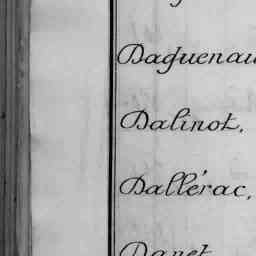 Daguenau
Dalinot,
Dallérac,
Danet